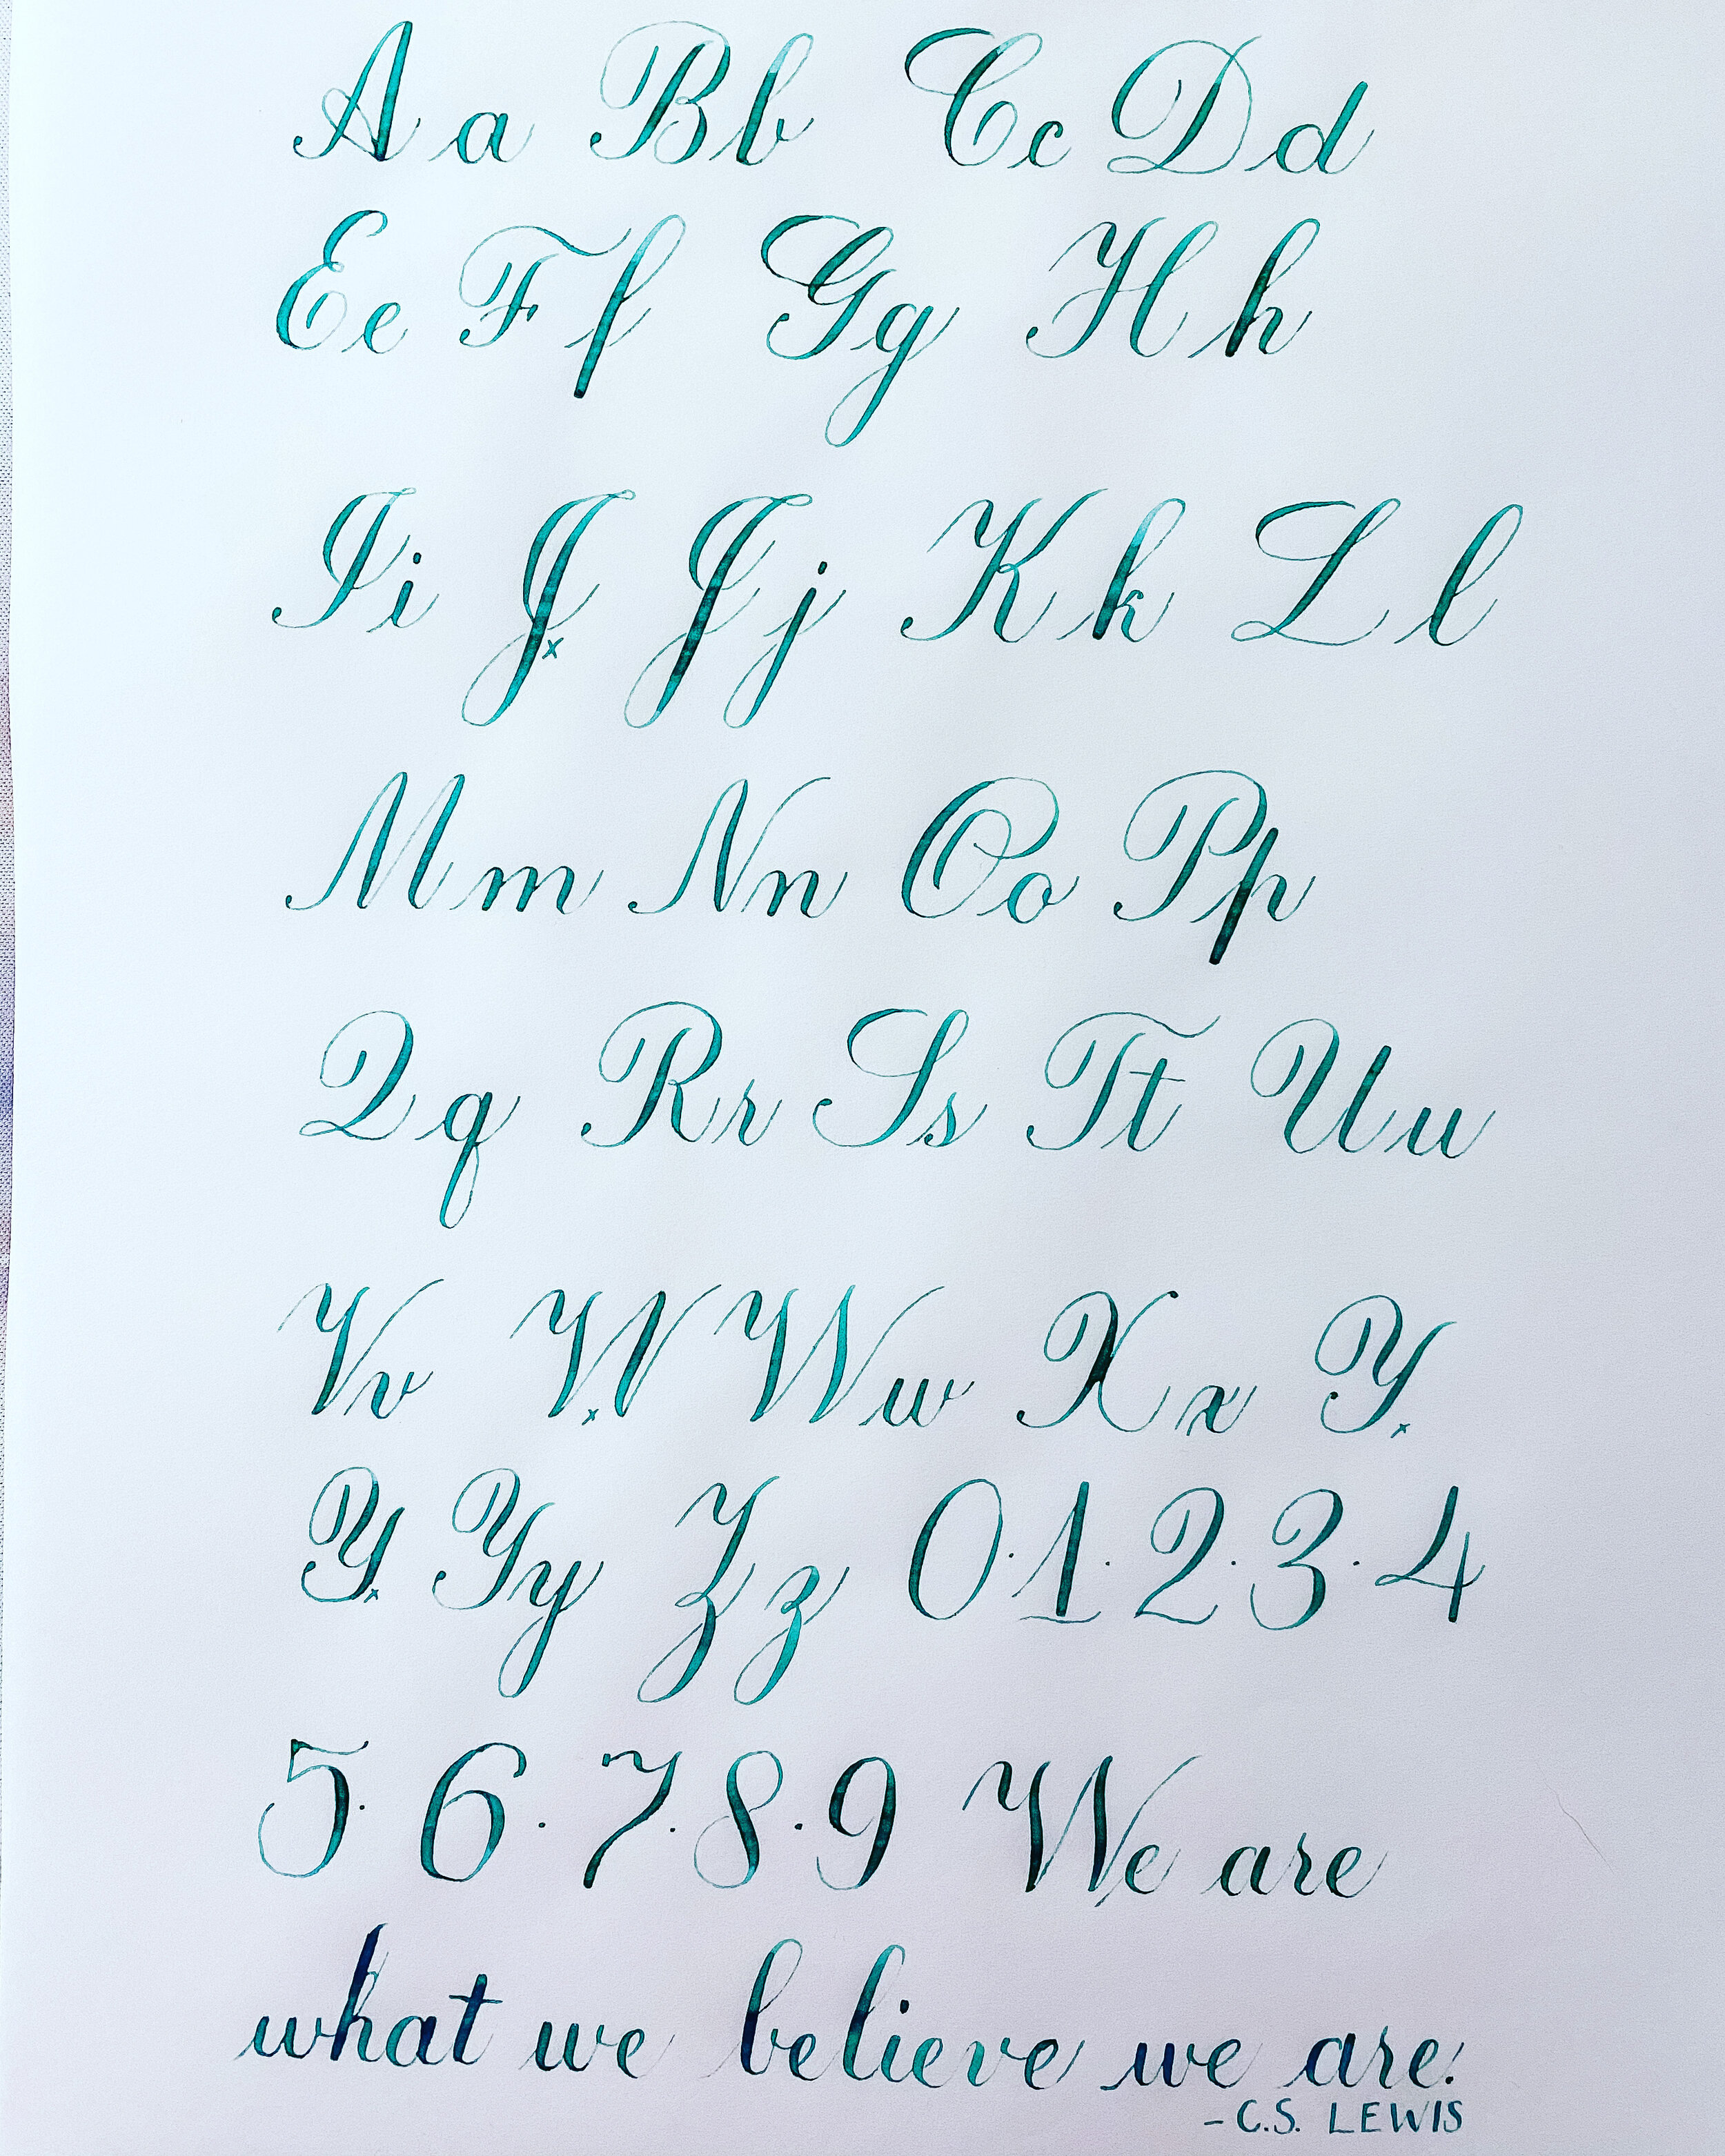 A a B b C c D d
E e F f G g H h
I i J x J j K k L l
M m N n O o P p
Q q R r S s T t U u
V v W x W w X x Y x
Y x Y y Z z 0 · 1 · 2 · 3 · 4
5 · 6 · 7 · 8 · 9 We are
what we believe we are.
- C.S. LEWIS